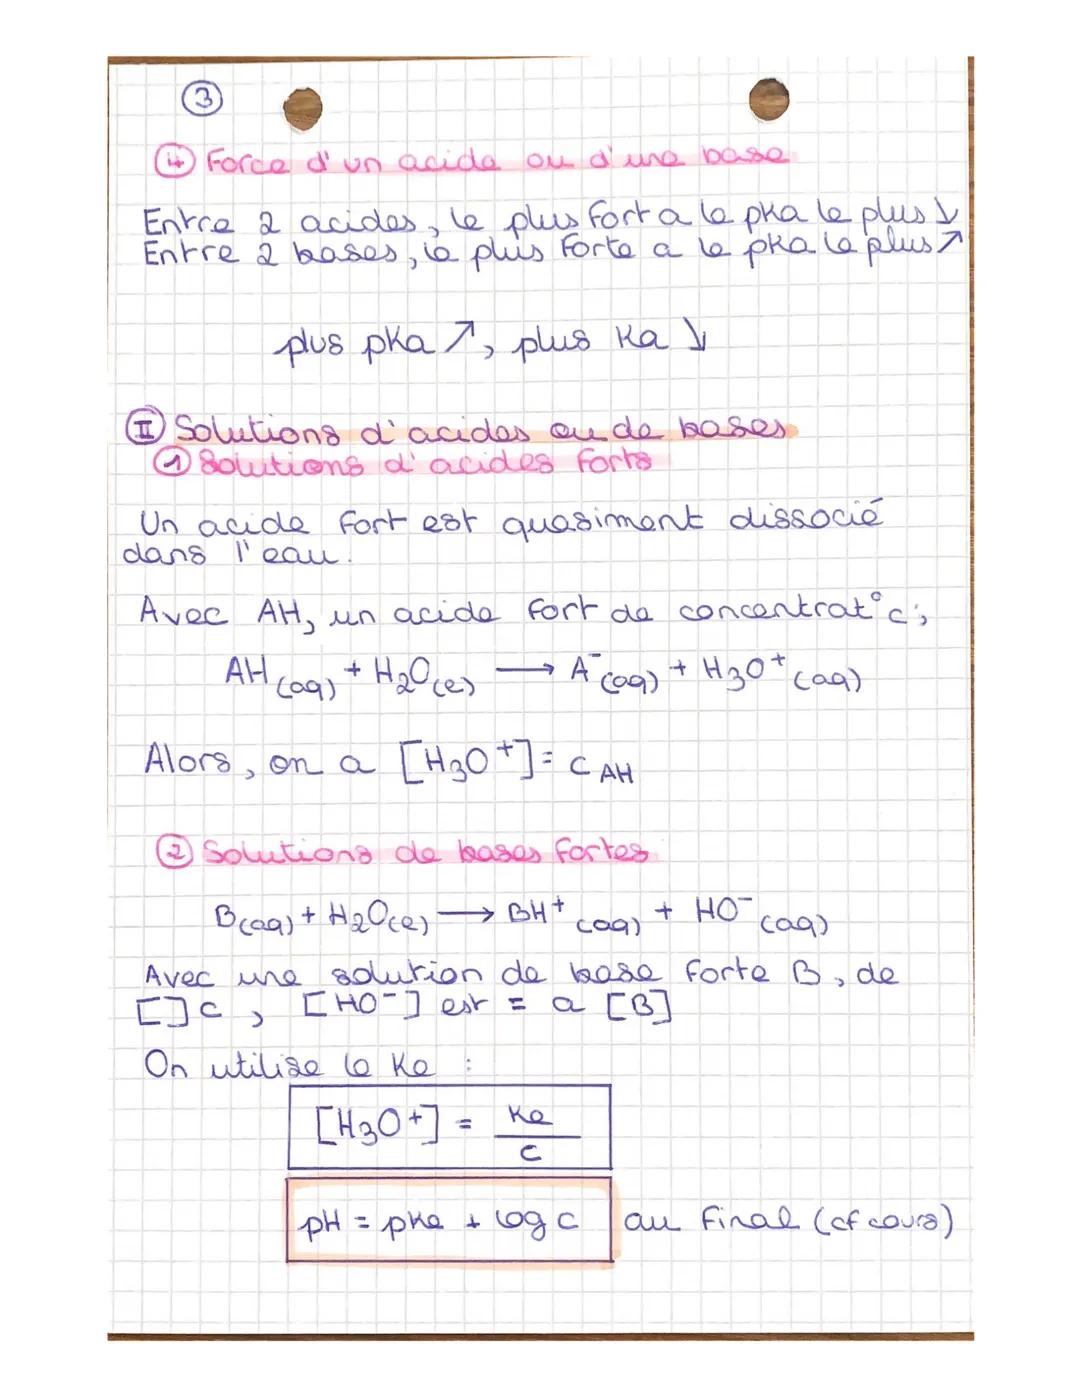 ③
④ Force d'un acide ou d'une base
Entre 2 acides, le plus fort a le pka le plus ↘
Entre 2 bases, la plus forte a le pka le plus ↗
plus pka ↗, plus Ka ↘
Ⅱ Solutions d'acides ou de bases
① Solutions d'acides forts
Un acide fort est quasiment dissocié
dans l'eau.
Avec AH, un acide fort de concentrat° c;
AH(aq) + H₂O(l) ⟶ A⁻(aq) + H₃O⁺(aq)
Alors, on a [H₃O⁺] = c AH
② Solutions de bases fortes
B(aq) + H₂O(l) ⟶ BH⁺(aq) + HO⁻(aq)
Avec une solution de base forte B, de
[]c, [HO⁻] est = a [B]
On utilise le Ke :
[H₃O⁺] = Ke / c
pH = pKe + log c au final (cf cours)